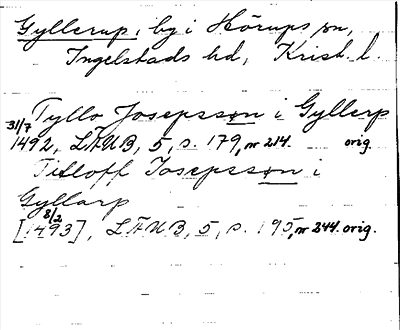 Gyllerup, by i Hörups sn,
Ingelstads hd, Krist. l.
Tyllo Josepsson i Gyllerp
31/7 1492, LÄUB, 5, s. 179, nr 214. orig.
Titloff Josepsson i
Gyllarp
[8/2 1493], LÄUB, 5, s. 195, nr 244. orig.